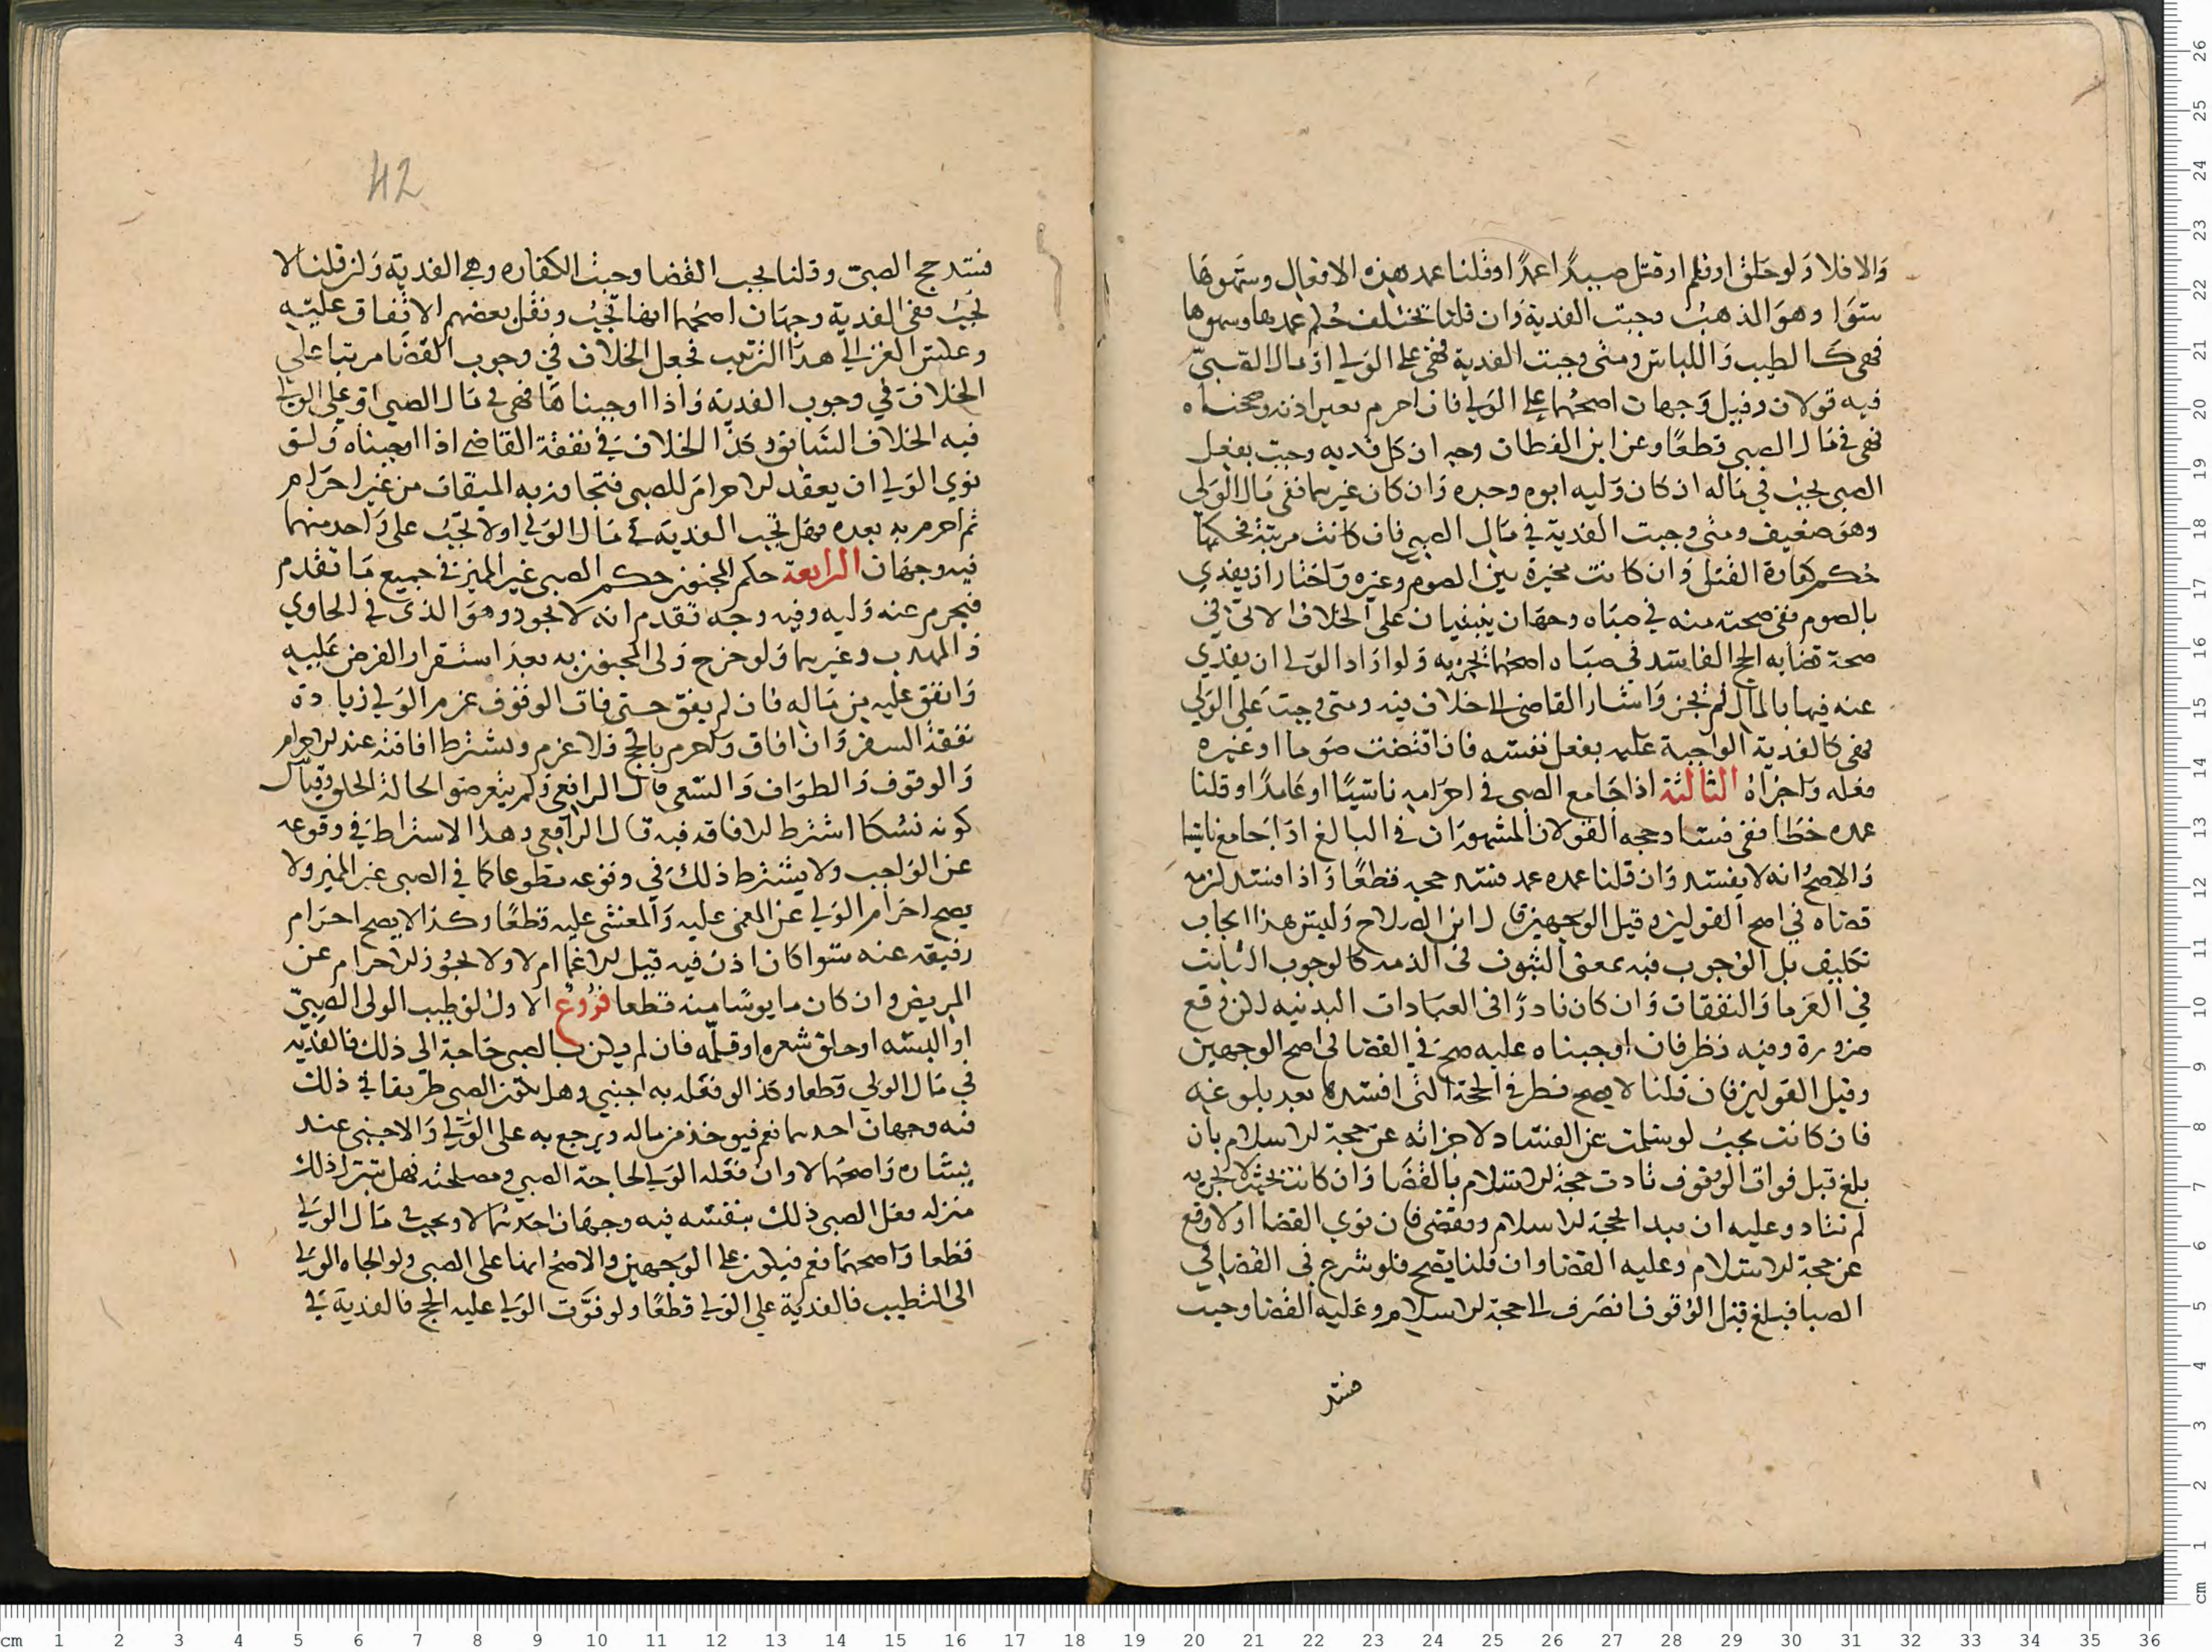 والا فلا ولو حلق او قلم او قتل صيدا عمدا وقلنا عمد هذه الافعال وسهوها
سوا وهو المذهب وجبت الفدية وان قلنا تختلف حكم عمدها وسهوها
فهي كالطيب واللباس ومتى وجبت الفدية فهي على الولي او مال الصبي
فيه قولان وقيل وجهان اصحهما على الولي فان احرم بغير اذنه وصححناه
فهي في مال الصبي قطعا وعن ابن القطان وجه ان كل فديه وجبت بفعل
الصبي تجب في ماله ان كان وليه ابوه وجده وان كان غيرهما ففي مال الولي
وهو ضعيف ومتى وجبت الفدية في مال الصبي فان كانت مرتبة فحكمها
حكم كفارة القتل وان كانت مخيرة بين الصوم وغيره واختار ان يفدي
بالصوم ففي صحته منه في صباه وجهان ينبنيان على الخلاف الاتي في
صحة قضايه الحج الفاسد في صباه اصحهما تجزيه ولو اراد الولي ان يفدي
عنه فيها بالمال لم تجز واشار القاضي الى خلاف فيه ومتى وجبت على الولي
فهي كالفدية الواجبة عليه بفعل نفسه فان اقتضت صوما او غيره
فعله واجزاه الثالثة اذا جامع الصبي في احرامه ناسيا او عامدا وقلنا
عمده خطا ففي فساد حجه القولان المشهوران في البالغ اذا جامع ناسيا
والاصح انه لا يفسد وان قلنا عمده عمد فسد حجه قطعا واذا فسد لزمه
قضاه في اصح القولين وقيل الوجهين قال ابن الصلاح وليس هذا ايجاب
تكليف بل الوجوب فيه بمعنى الثبوت في الذمه كالوجوب الثابت
في الغرما والنفقات وان كان نادرا في العبادات البدنيه لكن وقع
ضرورة وفيه نظر فان اوجبناه عليه صح في القضا في اصح الوجهين
وقيل القولين فان قلنا لا يصح نظر في الحجة التي افسدها بعد بلوغه
فان كانت بحيث لو سلمت عن الفساد لاجزاته عن حجة الاسلام بان
بلغ قبل فوات الوقوف تادت حجة الاسلام بالقضا وان كانت بحيث لا تجزيه
لم تتاد وعليه ان يبدا بحجة الاسلام ويقضي فان نوى القضا اولا وقع
عن حجة الاسلام وعليه القضا وان قلنا يصح فلو شرع في القضا في
الصبا فبلغ قبل الوقوف انصرف الى حجة الاسلام وعليه القضا وحيث
فسد
42
فسد حج الصبي وقلنا يجب القضا وجبت الكفاره وهي الفدية وان قلنا لا
تجب ففي الفدية وجهان اصحهما انها تجب ونقل بعضهم الاتفاق عليه
وعكس الغزالي هذا الترتيب فجعل الخلاف في وجوب القضا مرتبا على
الخلاف في وجوب الفدية واذا اوجبناها فهي في مال الصبي او على الولي
فيه الخلاف السابق وكذا الخلاف في نفقة القاضي اذا اوجبناه ولو
نوى الولي ان يعقد الاحرام للصبي فتجاوز به الميقات من غير احرام
ثم احرم به بعده فهل تجب الفدية في مال الولي او لا تجب على واحد منهما
فيه وجهان الرابعة حكم المجنون حكم الصبي غير المميز في جميع ما تقدم
فيحرم عنه وليه وفيه وجه تقدم انه لا يجوز وهو الذي في الحاوي
والمهذب وغيرهما ولو خرج ولي المجنون به بعد استقرار الفرض عليه
وانفق عليه من ماله فان لم يفق حتى فات الوقوف غرم الولي زيادة
نفقة السفر وان افاق واحرم بالحج فلا غرم ويشترط افاقته عند الاحرام
والوقوف والطواف والسعي قال الرافعي ولم يتعرضوا لحالة الحلق وقياس
كونه نسكا اشتراط الافاقه فيه قال الرافعي وهذا الاشتراط في وقوعه
عن الواجب ولا يشترط ذلك في وقوعه تطوعا كما في الصبي غير المميز ولا
يصح احرام الولي عن المغمى عليه والمغشى عليه قطعا وكذا لا يصح احرام
رفيقه عنه سوا كان اذن فيه قبل الاغما ام لا ولا يجوز الاحرام عن
المريض وان كان مايوسا منه قطعا فروع الاول لو طيب الولي الصبي
او البسه او حلق شعره او قلمه فان لم يكن بالصبي حاجة الى ذلك فالفدية
في مال الولي قطعا وكذا لو فعله به اجنبي وهل يكون الصبي طريقا في ذلك
فيه وجهان احدهما نعم فيوخذ من ماله ويرجع به على الولي والاجنبي عند
يساره واصحهما لا وان فعله الولي لحاجة الصبي ومصلحته فهل ينزل ذلك
منزله فعل الصبي ذلك بنفسه فيه وجهان احدهما لا ويجب في مال الولي
قطعا واصحهما نعم فيكون على الوجهين والاصح انها على الصبي ولو الجاه الولي
الى التطيب فالفدية على الولي قطعا ولو فوت الولي عليه الحج فالفدية في